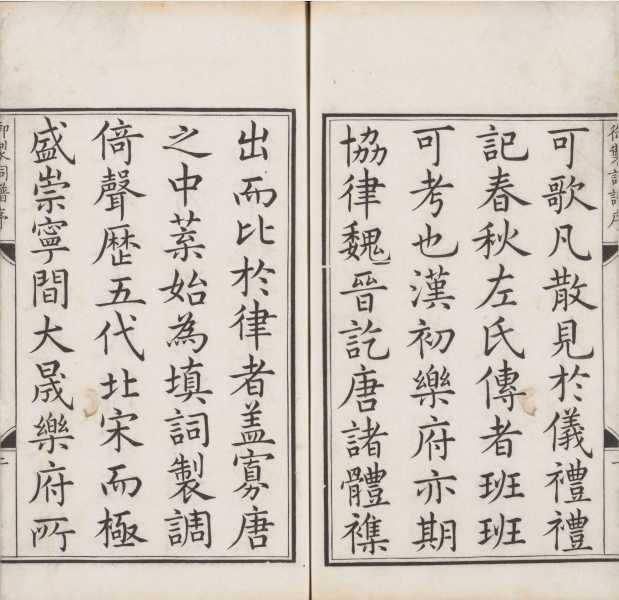 御製詞譜序
一
可歌凡散見於儀禮禮
記春秋左氏傳者班班
可考也漢初樂府亦期
協律魏晉訖唐諸體襍
出而比於律者盖寡唐
之中葉始為填詞製調
倚聲歴五代北宋而極
盛崇寧間大晟樂府所
御製詞譜序
二